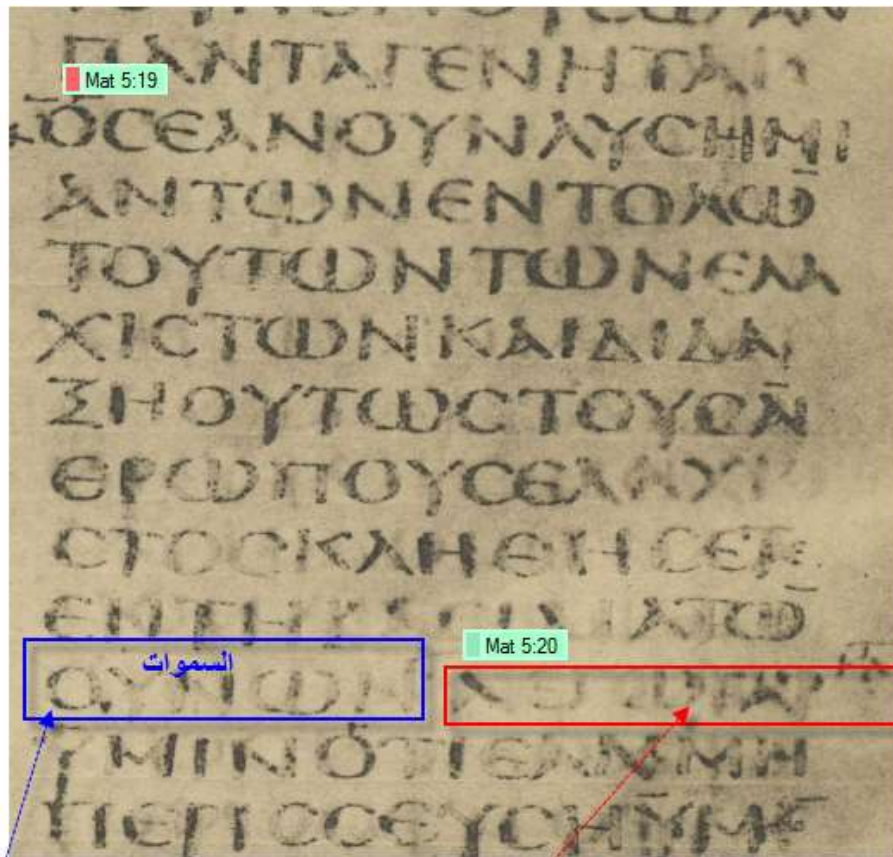 ΠΑΝΤΑΓΕΝΗΤΑΙ
Mat 5:19
ΟϹΕΑΝΟΥΝΛΥϹΗΜΙ
ΑΝΤΩΝΕΝΤΟΛΩ̅
ΤΟΥΤΩΝΤΩΝΕΛΑ
ΧΙϹΤΩΝΚΑΙΔΙΔΑ
ΞΗΟΥΤΩϹΤΟΥϹΑ̅
ΘΡΩΠΟΥϹΕΛΑΧΙ
ϹΤΟϹΚΛΗΘΗϹΕΤΕ
ΕΝΤΗΒΑϹΙΛΙΑΤΩ̅
السموات
Mat 5:20
ΟΥΝΩΝ
ΥΜΙΝΟΤΙΕΑΝΜΗ
ΠΕΡΙϹϹΕΥϹΗΥΜΩ̅